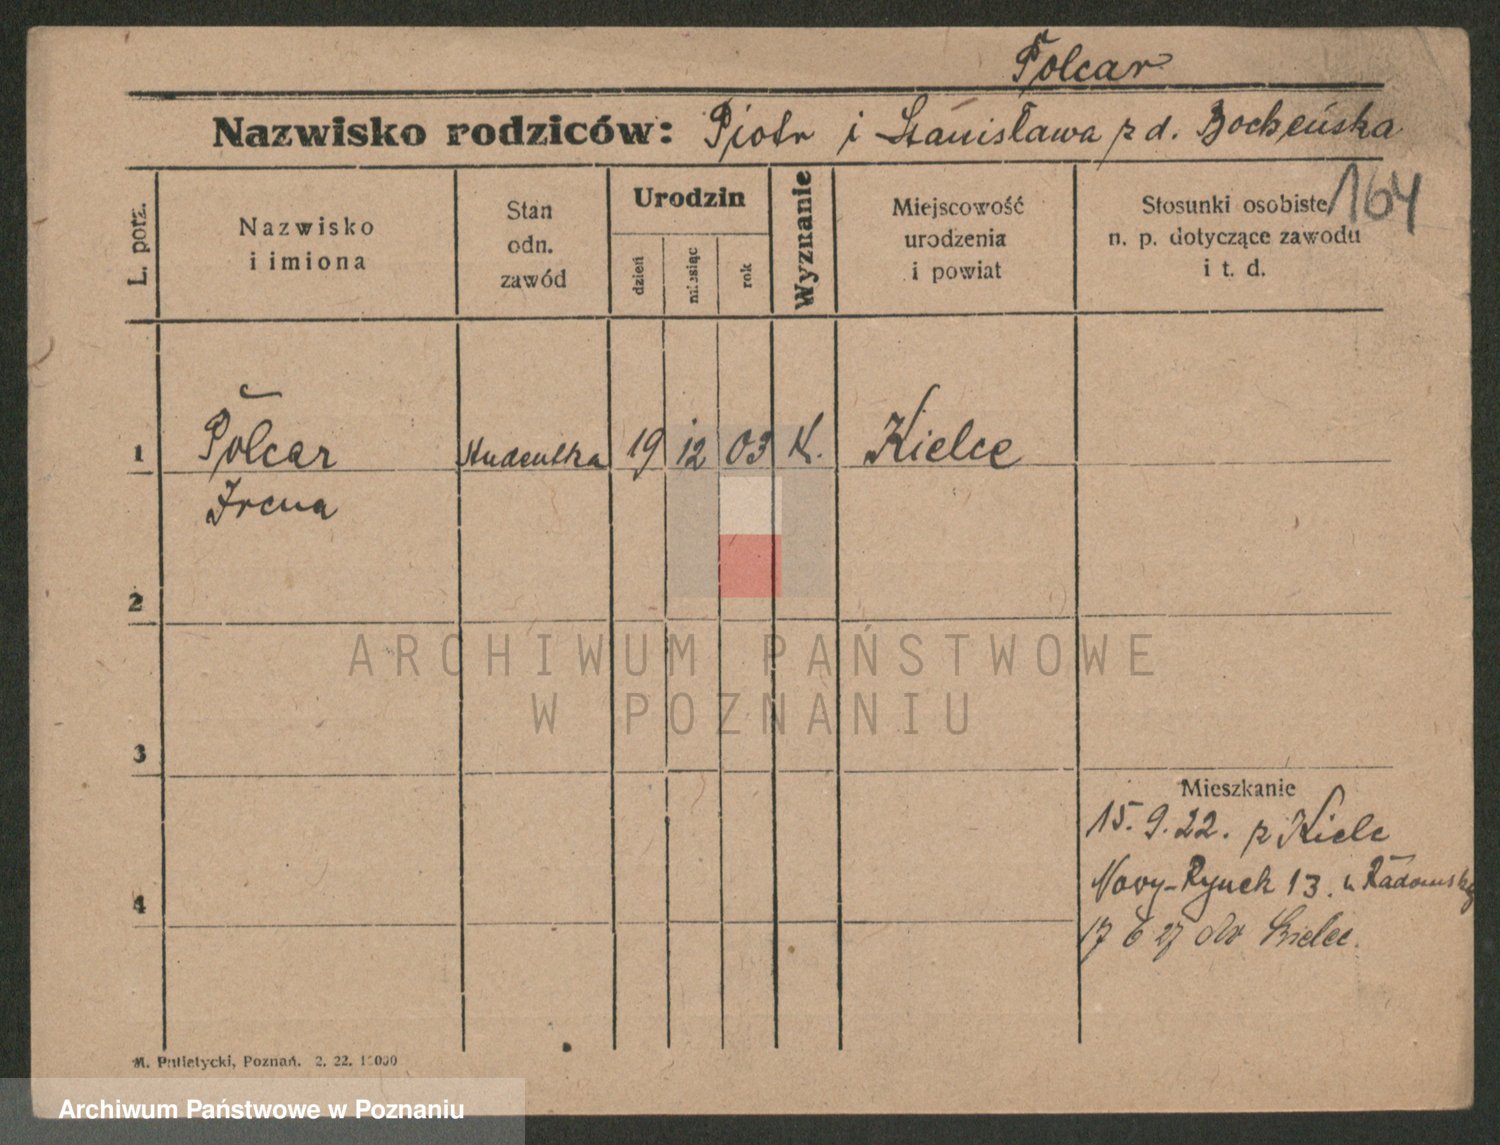 Polcar
Nazwisko rodziców: Piotr i Stanisława z d. Bocheńska
164
L. porz.
Nazwisko
i imiona
Stan
odn.
zawód
Urodzin
dzień
miesiąc
rok
Wyznanie
Miejscowość
urodzenia
i powiat
Stosunki osobiste,
n. p. dotyczące zawodu
i t. d.
1 Polcar Studentka 19 12 03 K. Kielce
Irena
2
ARCHIWUM PAŃSTWOWE
W POZNANIU
3
Mieszkanie
15. 9. 22. z Kielc
4
Nowy-Rynek 13. u Radomskej
17 6 27 do Kielce.
M. Putiatycki, Poznań. 2. 22. 11000
Archiwum Państwowe w Poznaniu